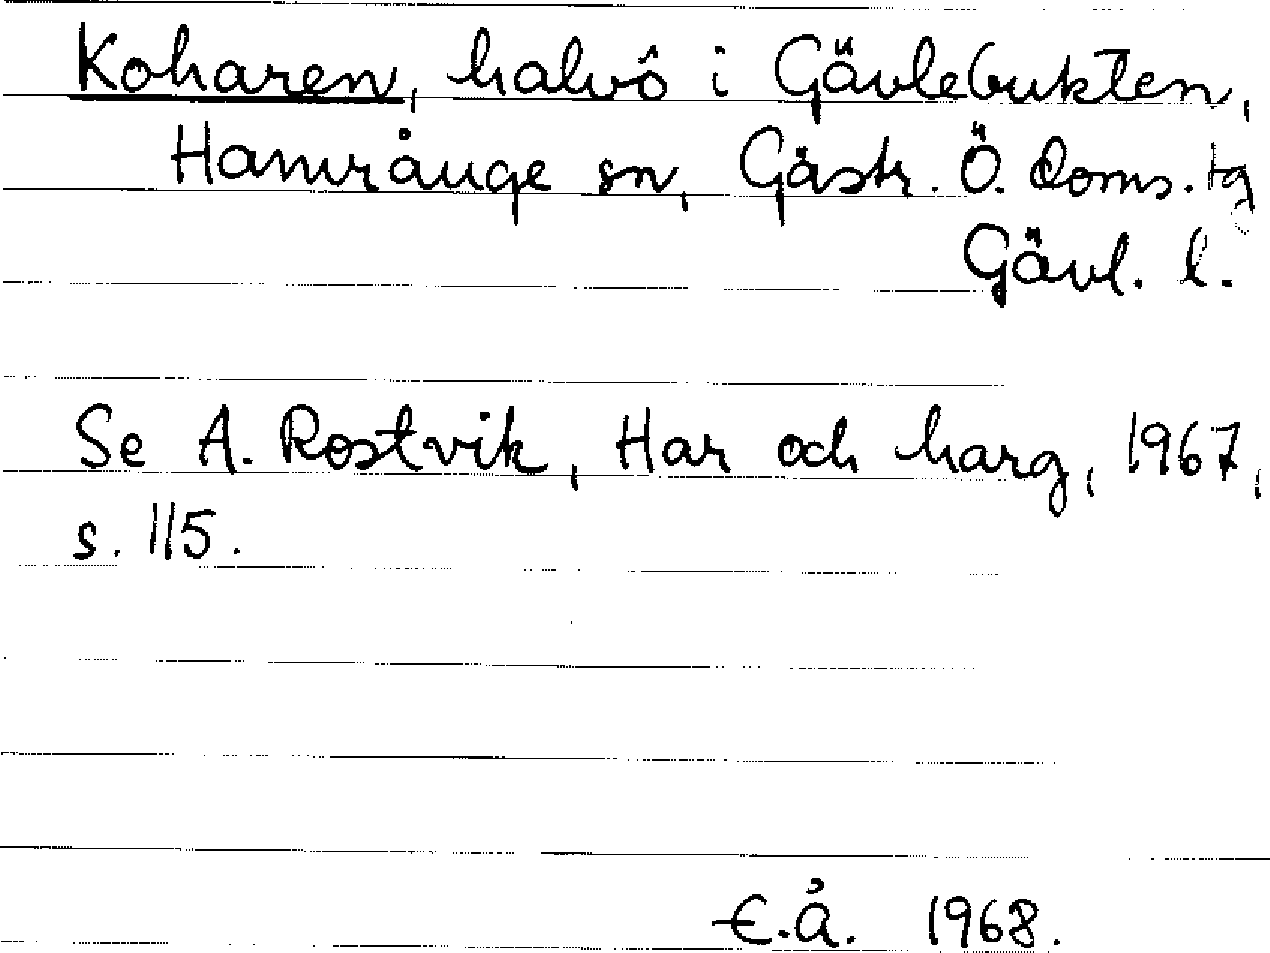 Koharen, halvö i Gävlebukten,
Hamrånge sn, Gästr. Ö. Doms. tg
Gävl. l.
Se A. Rostvik, Har och harg, 1967,
s. 115.
E.Å. 1968.